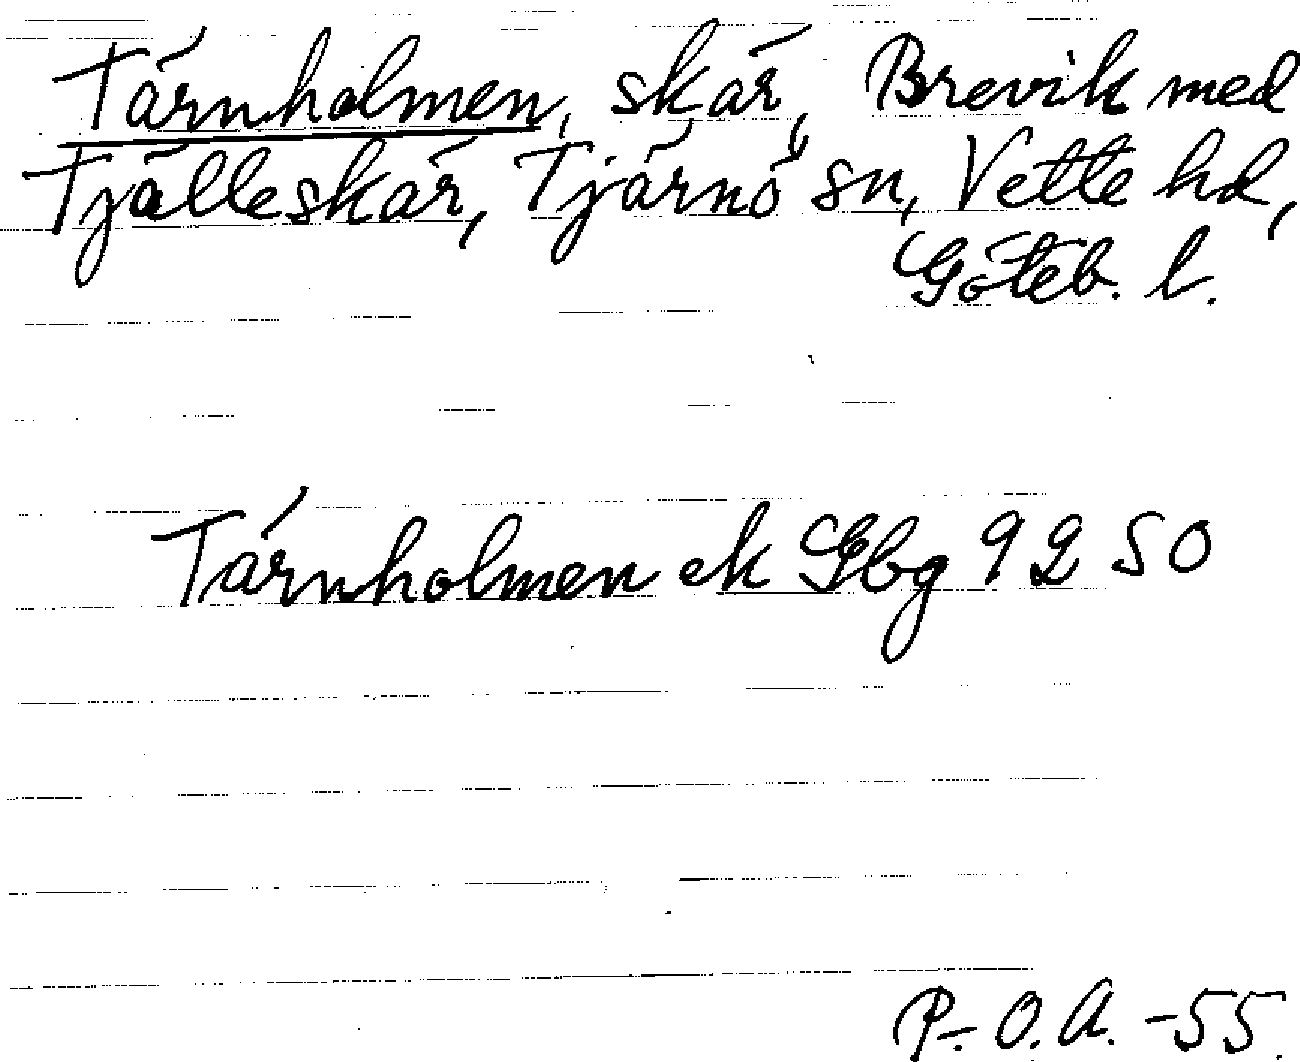 Tärnholmen, skär, Brevik med
Tjälleskär, Tjärnö sn, Vette hd,
Göteb. l.
Tärnholmen ek Gbg 92 50
P.-O.A. -55.